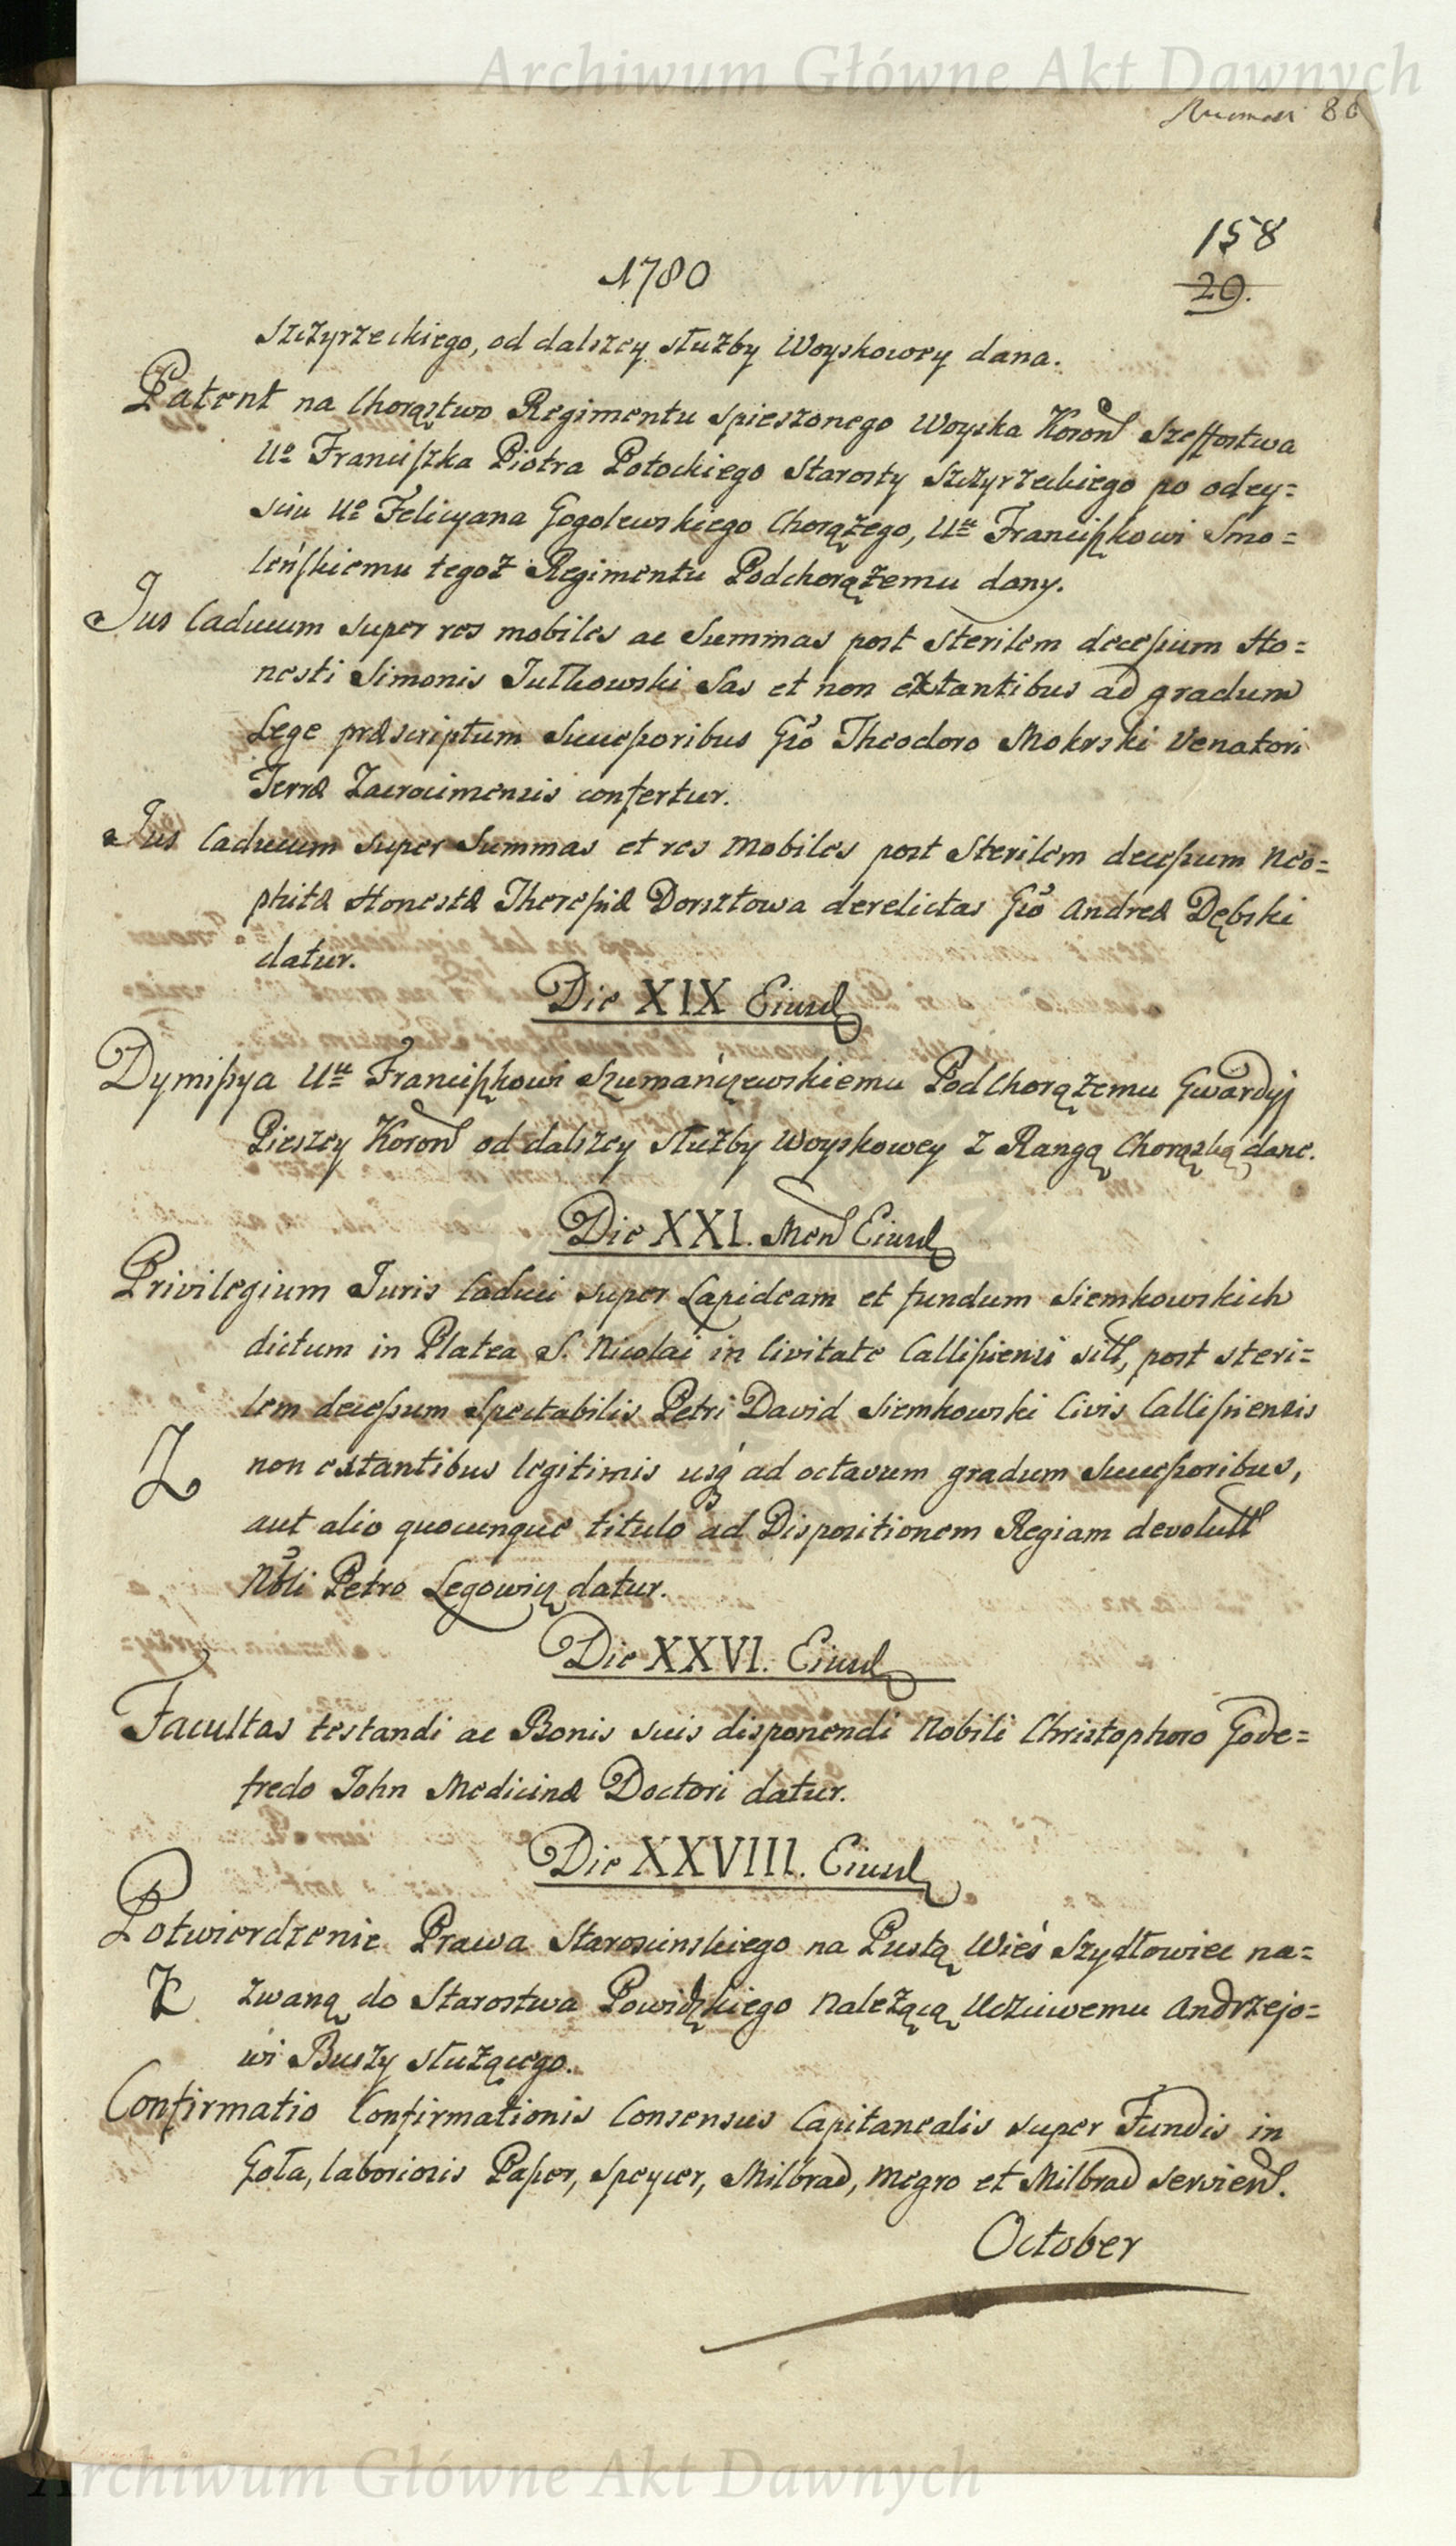 Archiwum Główne Akt Dawnych
86
158
29.
1780
Szczyrzeckiego, od dalszey służby Woyskowey dana.
Patent na Chorąstwo Regimentu Spieszonego Woyska Koron Szeffostwa
Uo Franciszka Piotra Potockiego Starosty Szczyrzeckiego po odey=
sciu Uo Felicyana Gogolewskiego Chorążego, Uu Franciszkowi Smo=
leńskiemu tegoż Regimentu Podchorążemu dany.
Jus Caducum super res mobiles ac Summas post Sterilem decessum Ho=
nesti Simonis Jutkowski Sas et non extantibus ad gradum
Lege præscriptum Successoribus Gso Theodoro Mokrski Venatori
Terræ Zacrocimensis confertur.
Jus Caducum super Summas et res Mobiles post Sterilem decessum Neo=
phitæ Honestæ Theressiæ Dorsztowa derelictas Gso Andreæ Dębski
datur.
Die XIX Eiusd
Dymissya Uu Franciszkowi Szumańczewskiemu PodChorążemu Gwardyi
Pieszey Koron od dalszey służby Woyskowey z Rangą Chorązką dane.
Die XXI. Men Eiusd
Privilegium Juris Caduci super Lapideam et fundum Siemkowskich
dictum in Platea S. Nicolai in Civitate Callissiensi sitt, post steri=
lem decessum Spectabilis Petri David Siemkowski Civis Callissiensis
Z non extantibus legitimis usq ad octavum gradum Successoribus,
aut alio quocunque titulo ad Dispositionem Regiam devolutt
Nbli Petro Legowicz datur.
Die XXVI. Eiusd
Facultas testandi ac Bonis suis disponendi Nobili Christophoro Gode=
fredo John Medicinæ Doctori datur.
Die XXVIII. Eiusd
Potwierdzenie Prawa Staroscinskiego na Pustą Wieś Szydłowiec na=
Z zwaną do Starostwa Powidzkiego należącą Uczciwemu Andrzejo=
wi Buszy służącego.
Confirmatio Confirmationis Consensus Capitanealis super Fundis in
Gota, laboriosis Paper, Speycer, Milbrad, Megro et Milbrad servien.
October
Archiwum Główne Akt Dawnych